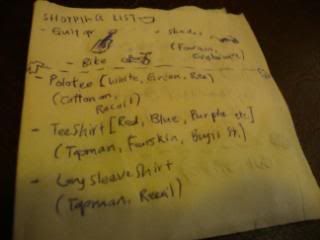 SHOPPING LIST
- Guitar
- Shades
- Bike
- Polotee [White, Green, Red]
(Cotton on,
- Tee Shirt [Red, Blue, Purple etc]
(Topman, Foreskin, Bugis St.)
- Long Sleeve Shirt
(Topman,